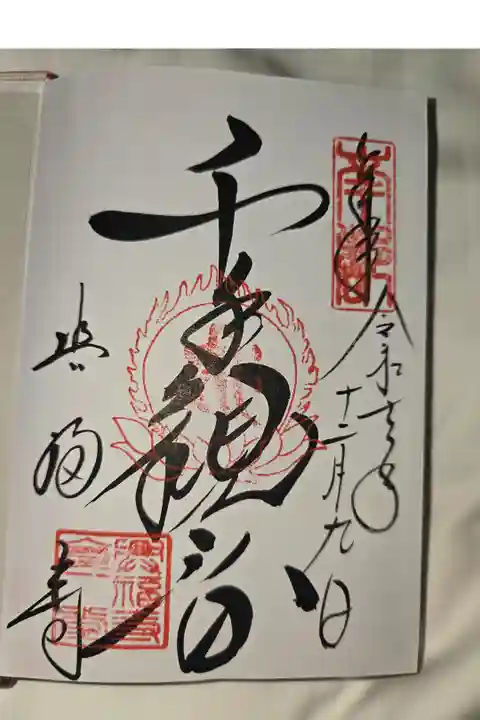 奉拝
令和七年十二月九日
千手観音
興福寺